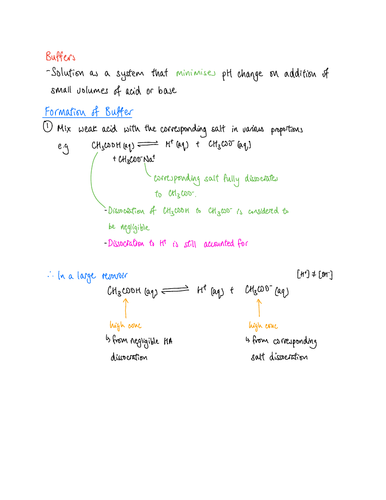 Buffers
-Solution as a system that minimises pH change on addition of
small volumes of acid or base
Formation of Buffer
① Mix weak acid with the corresponding salt in various proportions
e.g CH₃COOH (aq) ⇌ H⁺ (aq) + CH₃COO⁻ (aq)
+ CH₃COO⁻Na⁺
corresponding salt fully dissociates
to CH₃COO⁻
-Dissociation of CH₃COOH to CH₃COO⁻ is considered to
be negligible
-Dissociation to H⁺ is still accounted for
∴ In a large [H⁺] ≠ [OH⁻]
CH₃COOH (aq) ⇌ H⁺ (aq) + CH₃COO⁻ (aq)
high conc high conc
↳ from negligible HA ↳ from corresponding
dissociation salt dissociation